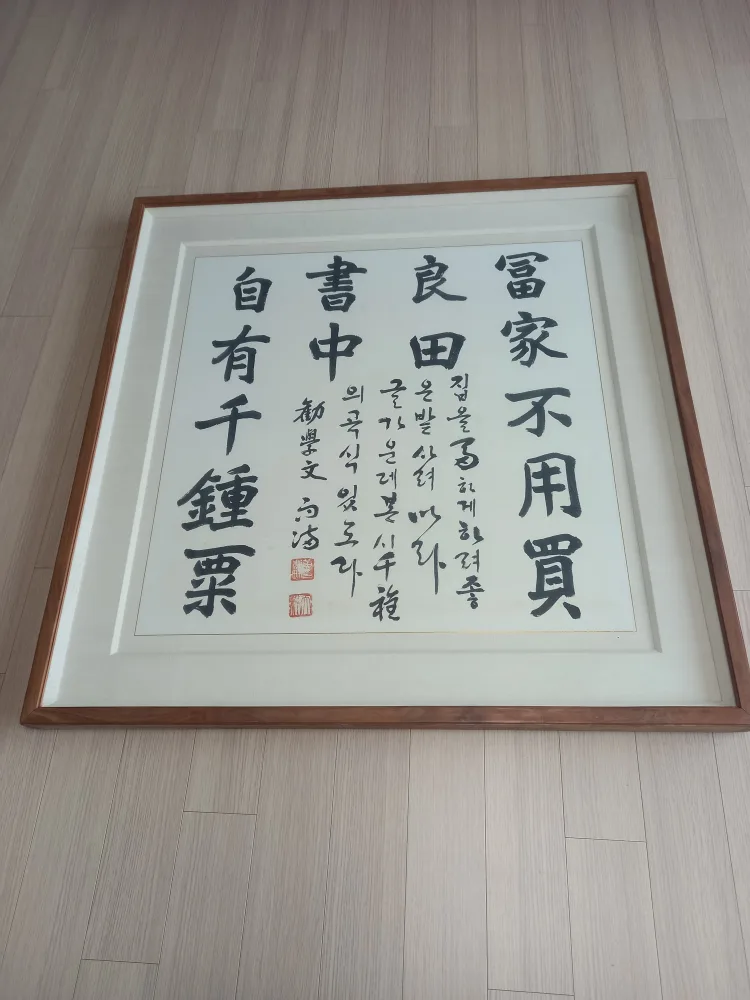 冨家不用買
良田
書中
自有千鍾粟
집을 富하게 하려 좋
은 밭 사려 마라
글 가운데 본시 千種
의 곡식 있도다
勸學文